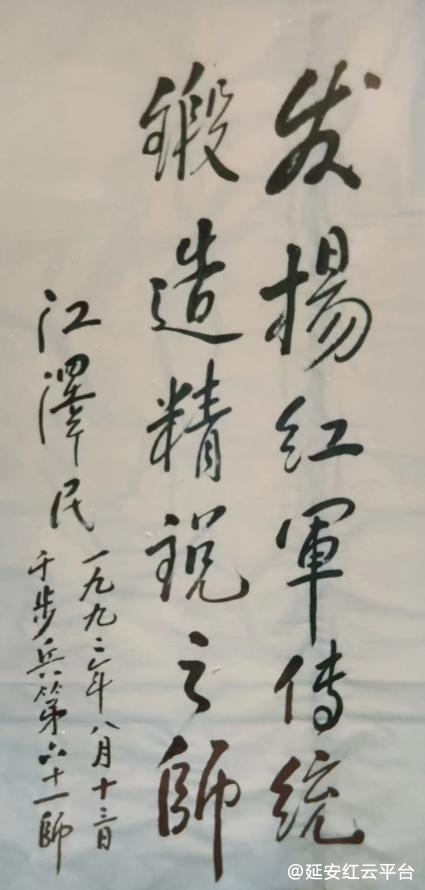 发揚红軍傳统
鍛造精锐之師
江澤民
一九九二年八月十三日
于步兵第六十一師
@延安红云平台